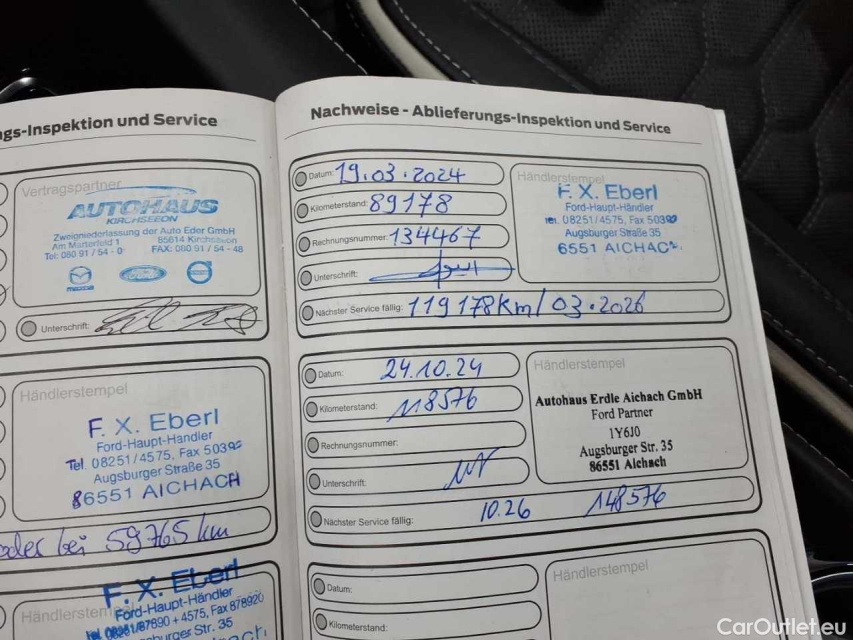 ngs-Inspektion und Service
Vertragspartner
AUTOHAUS
KIRCHSEEON
Zweigniederlassung der Auto Eder GmbH
Am Marterfeld 1 85614 Kirchseeon
Tel: 080 91 / 54 - 0 FAX: 080 91 / 54 - 48
mazda Ford
Unterschrift:
Händlerstempel
F. X. Eberl
Ford-Haupt-Händler
Tel. 08251/4575, Fax 50392
Augsburger Straße 35
86551 AICHACH
oder bei 59765 km
Händlerstem
F. X. Eberl
Ford-Haupt-Händler
87890 + 4575, Fax 878920
sburger Str. 35
Nachweise - Ablieferungs-Inspektion und Service
Datum: 19.03.2024
Kilometerstand: 89178
Rechnungsnummer: 134467
Unterschrift:
Nächster Service fällig: 119178km/03.2026
Händlerstempel
F. X. Eberl
Ford-Haupt-Händler
Tel. 08251/4575, Fax 50392
Augsburger Straße 35
6551 AICHAC
Datum: 24.10.24
Kilometerstand: 118576
Rechnungsnummer:
Unterschrift:
Nächster Service fällig: 10.26 148576
Händlerstempel
Autohaus Erdle Aichach GmbH
Ford Partner
1Y6J0
Augsburger Str. 35
86551 Aichach
Datum:
Kilometerstand:
Händlerstempel
CarOutlet.eu